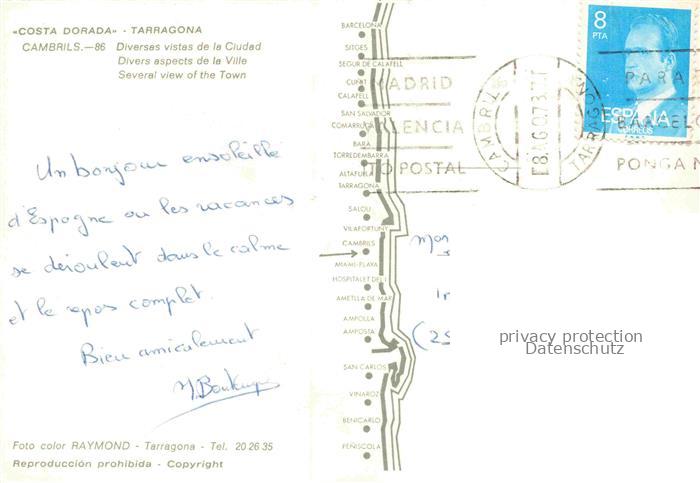 «COSTA DORADA» - TARRAGONA
CAMBRILS.—86 Diversas vistas de la Ciudad
Divers aspects de la Ville
Several view of the Town
Un bonjour ensoleillé
d'Espagne où les vacances
se déroulent dans le calme
et le repos complet.
Bien amicalement
Foto color RAYMOND - Tarragona - Tel. 20 26 35
Reproducción prohibida - Copyright
BARCELONA
SITGES
SEGUR DE CALAFELL
CUNIT
CALAFELL
SAN SALVADOR
COMARRUGA
BARA
TORREDEMBARRA
ALTAFULLA
TARRAGONA
SALOU
VILAFORTUNY
CAMBRILS
MIAMI-PLAYA
HOSPITALET DEL I
AMETLLA DE MAR
AMPOLLA
AMPOSTA
SAN CARLOS
VINAROZ
BENICARLO
PEÑISCOLA
MADRID
LENCIA
TO POSTAL
CAMBRILS
TARRAGON
PARA
BARCELO
PONGA N
8
PTA
ESPAÑA
CORREOS
(2
privacy protection
Datenschutz